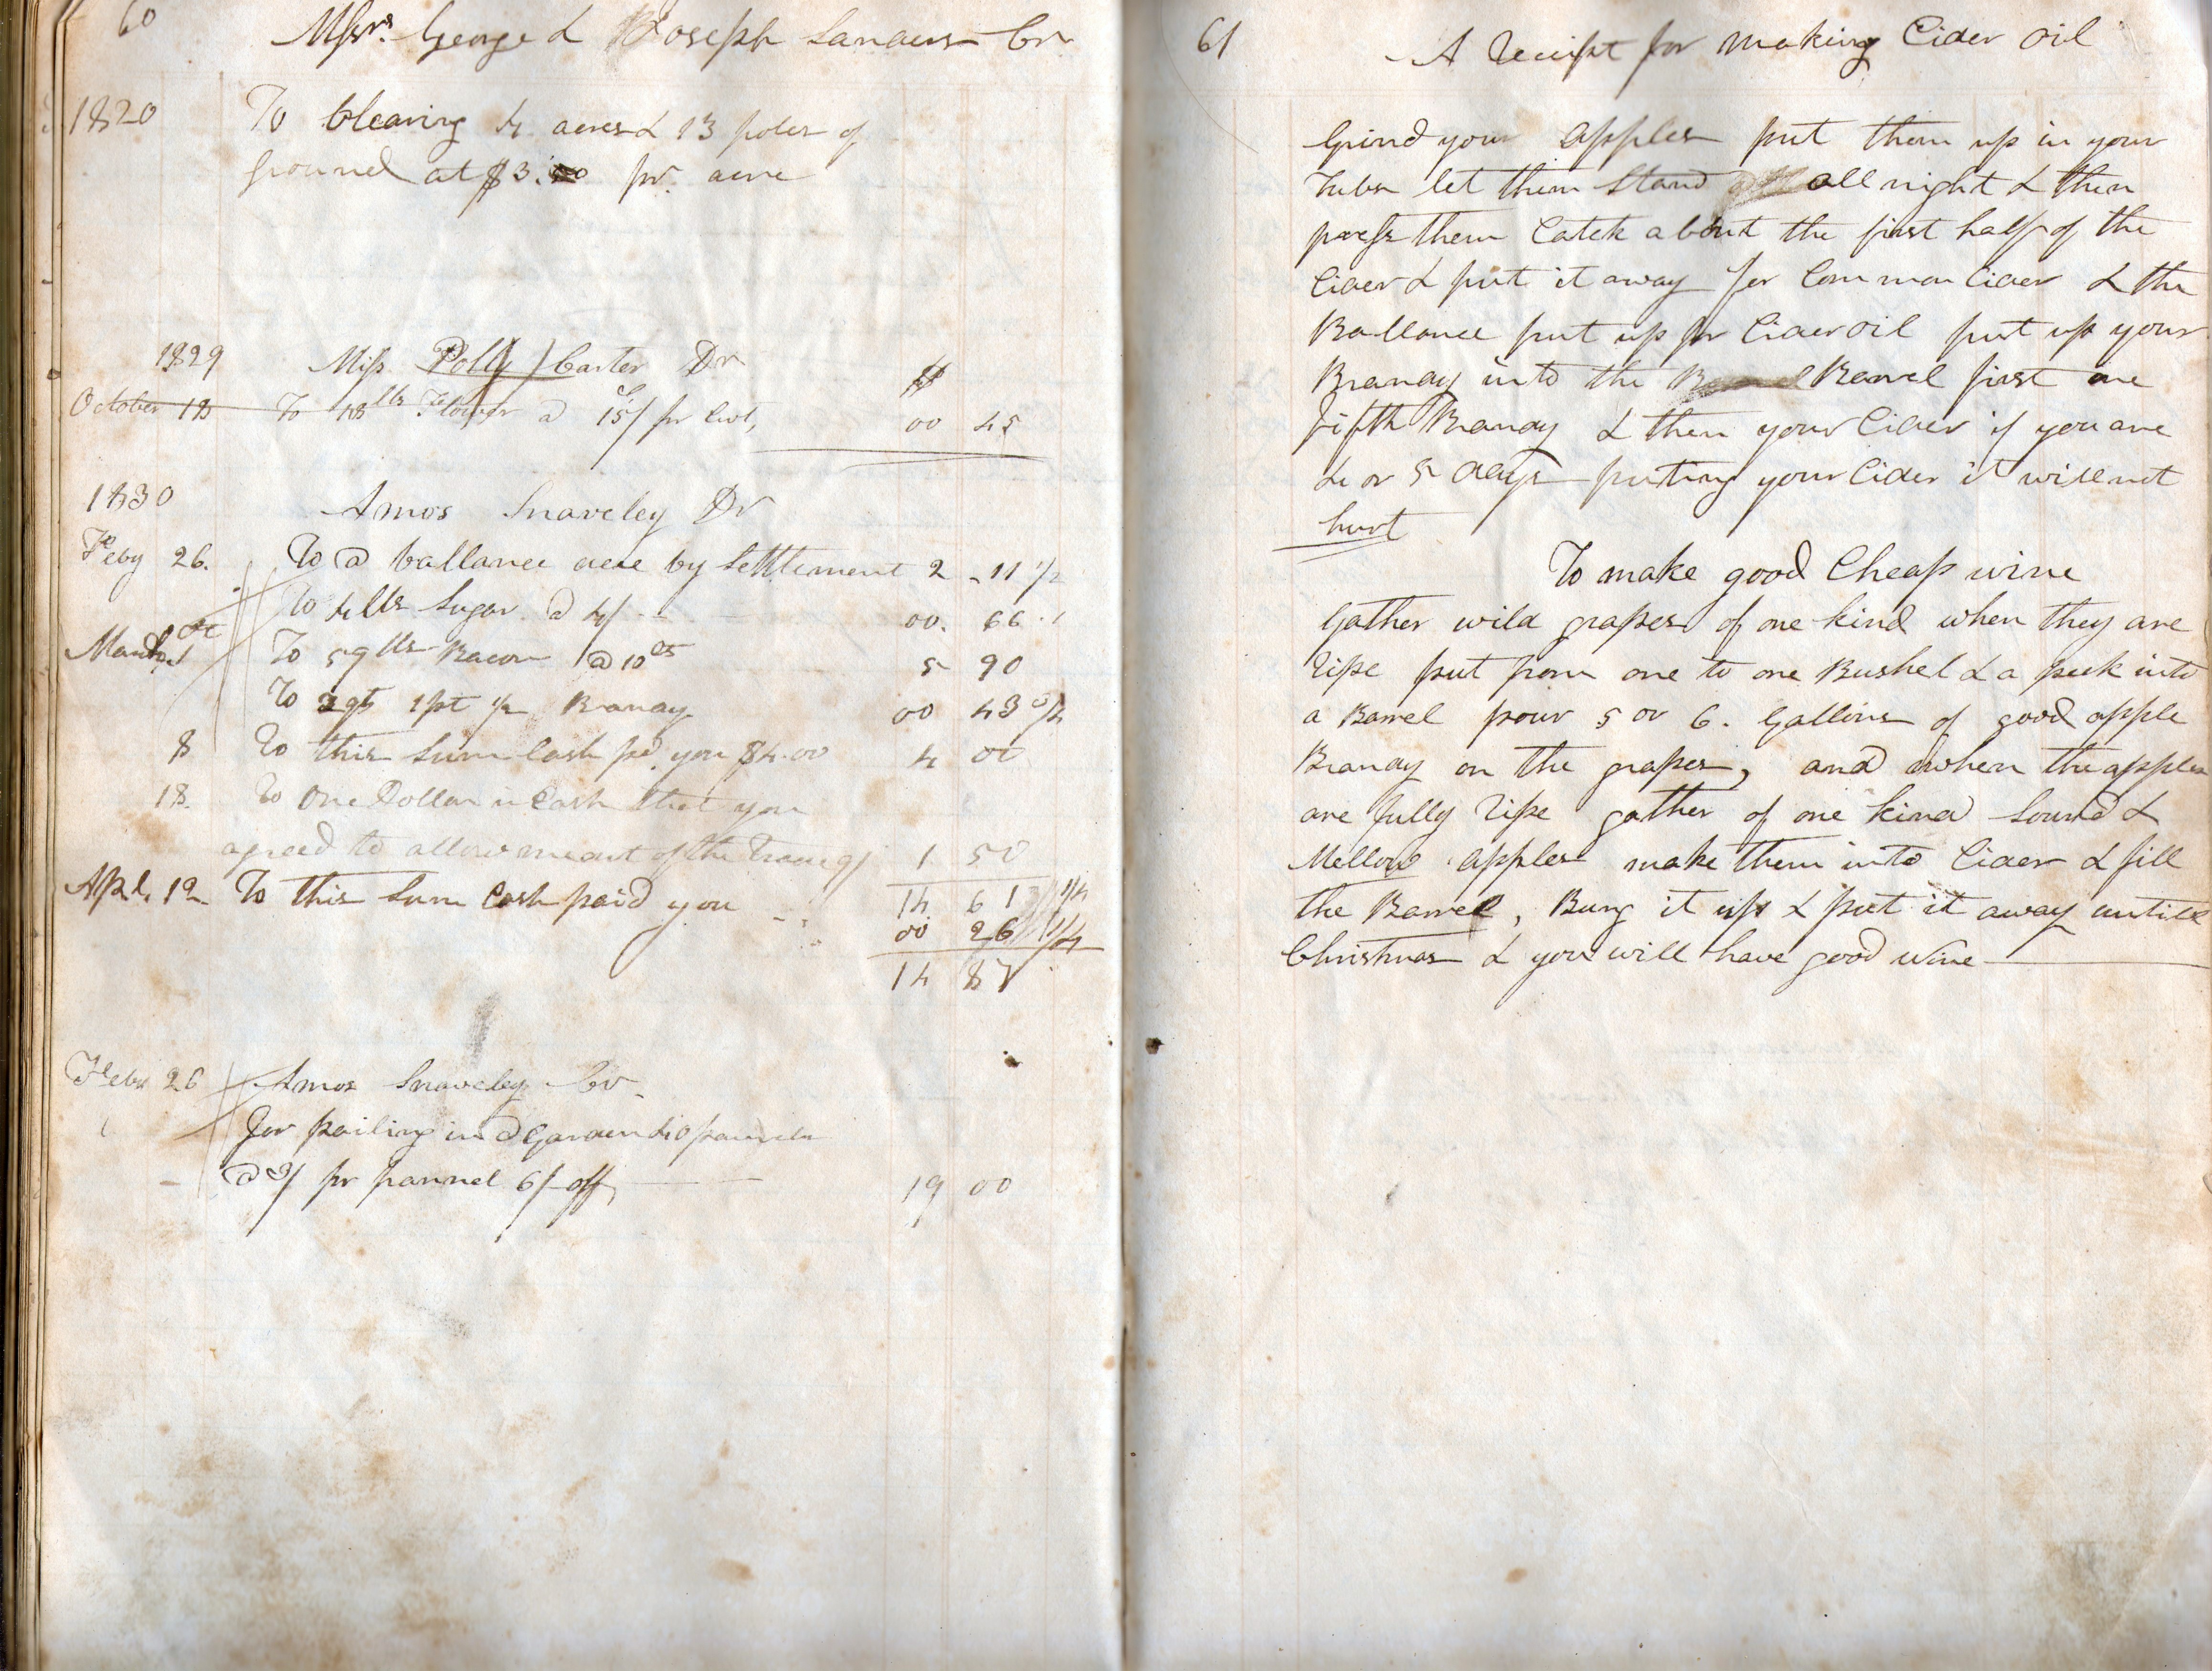 60
Messrs. George & Joseph Sanders Cr.
1820 To Clearing 4 acres & 13 poles of
ground at $3.50 pr. acre
1829 Miss Polly Carter Dr
$
October 18 To 18 lbs Flower @ 15/ pr Cwt, 00 45
1830 Amos Snaveley Dr
Feby 26. To @ ballance due by Settlement 2 - 11 1/2
To 4 lbs Sugar @ 4/ - - 00. 66.
March 1 To 59 lbs Bacon @ 10 cts 5 90
To 2 qts 1 pt 1/2 Brandy 00 43 3/4
8 To this Sum Cash pd. you $4.00 4 00
18. To One Dollar in Cash that you
agreed to allow me out of the 1 50
14 61 1/4
Apl. 12 To this Sum Cash paid you - - 00 26 1/4
14 87
Feby 26 Amos Snaveley Cr.
for pailing in @ Garden 40 pannels
@ 3/ pr pannel 6/ off, 19 00
61
A Receipt for making Cider oil
Grind your apples put them up in your
Tubs let them Stand all night & then
press them Catch about the first half of the
Cider & put it away for Common Cider & the
Ballance put up for Cider oil put up your
Brandy into the Barrel first one
fifth Brandy & then your Cider if you are
4 or 5 days puting your Cider it will not
hurt
To make good Cheap wine
Gather wild grapes of one kind when they are
ripe put from one to one Bushel & a peck into
a Barrel pour 5 or 6. Gallons of good apple
Brandy on the grapes, and when the apples
are fully ripe gather of one kind Sound &
Mellow apples make them into Cider & fill
the Barrel, Bung it up & put it away untill
Christmas & you will have good wine